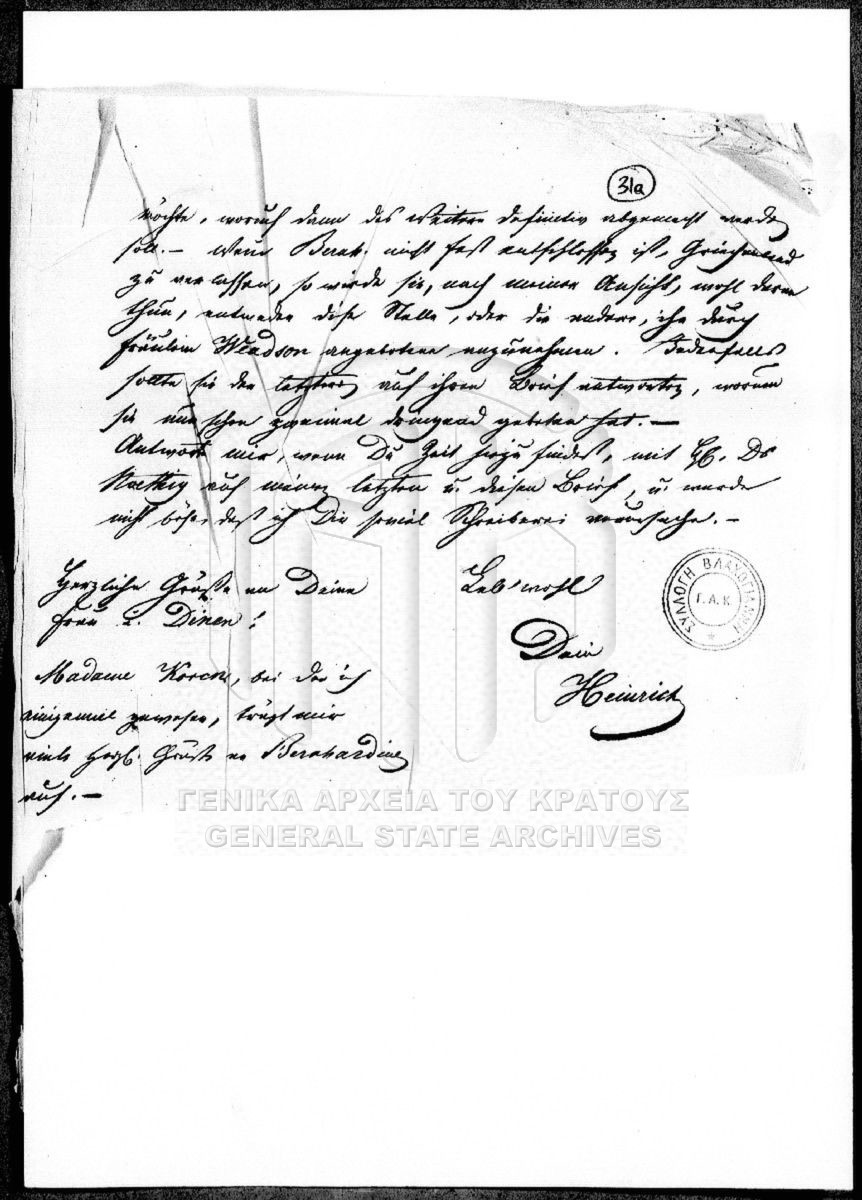 31a
möchte, worauf dann das Weitere definitiv abgemacht werden
soll. – Wenn Bernh. nicht fest entschlossen ist, Griechenland
zu verlassen, so würde sie, nach meiner Ansicht, wohl daran
thun, entweder diese Stelle, oder die andere, ihr durch
Fräulein angebotene anzunehmen. Jedenfalls
sollte sie der letztern auf ihren Brief antworten, worum
sie nun schon zweimal dringend gebeten hat. –
Antworte mir, wenn Du Zeit hiezu findest, mit
auf meinen letzten u. diesen Brief, u. werde
nicht böse, daß ich Dir soviel Schreiberei verursache. –
Herzliche Grüße an Deine
Frau u.
Leb' wohl
Dein
Heinrich
Madame, bei der ich
einigemal gewesen, trägt mir
viele herzl. Grüße an Bernhardine
auf. –
ΣΥΛΛΟΓΗ ΒΛΑΧΟΓΙΑΝΝΗ
Γ.Α.Κ.
ΓΕΝΙΚΑ ΑΡΧΕΙΑ ΤΟΥ ΚΡΑΤΟΥΣ
GENERAL STATE ARCHIVES